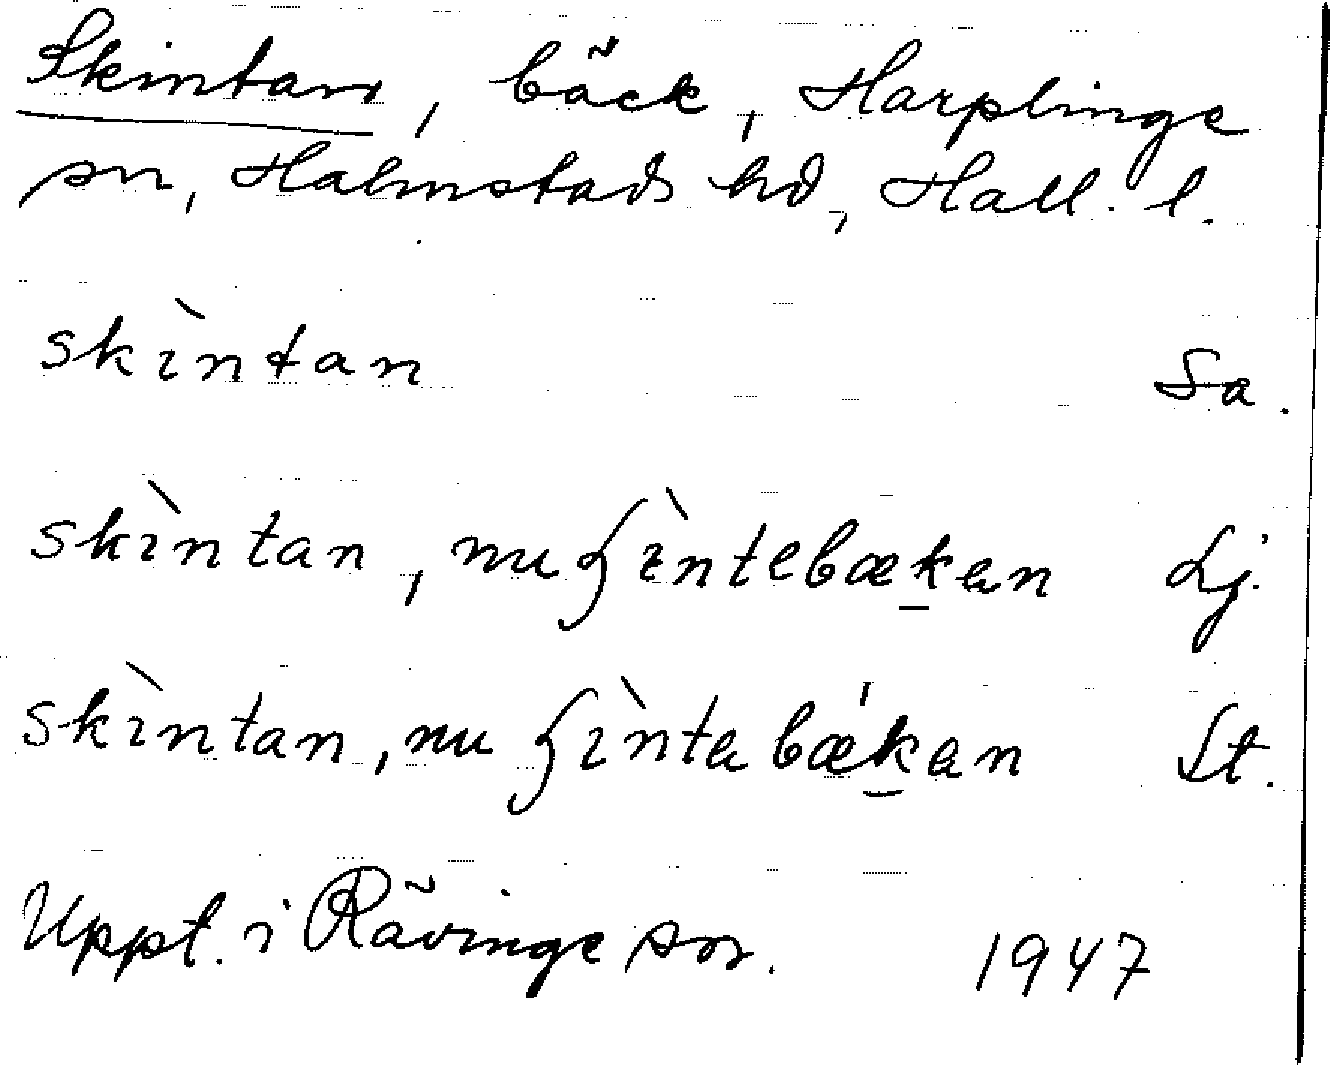 Skintan, bäck, Harplinge
sn, Halmstads hd, Hall. l.
skìntan Sa.
skìntan, nu ʃìntebækan Lj.
skìntan, nu ʃìntabǽkan St.
Uppt. i Rävinge sn. 1947